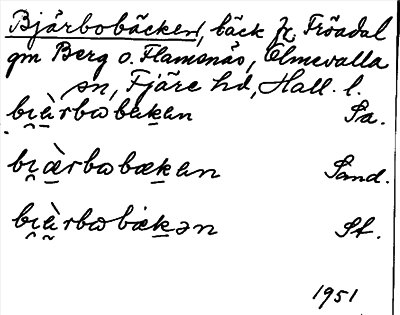 Bjärbobäcken, bäck fr. Fröadal
gm Berg o. Flamsnäs, Ölmevalla
sn, Fjäre hd, Hall. l.
bi̯æ̀rbωbäkan Sa.
bi̯æ̀rbωbækan Sand.
bi̯ä̀rbωbäkən St.
1951